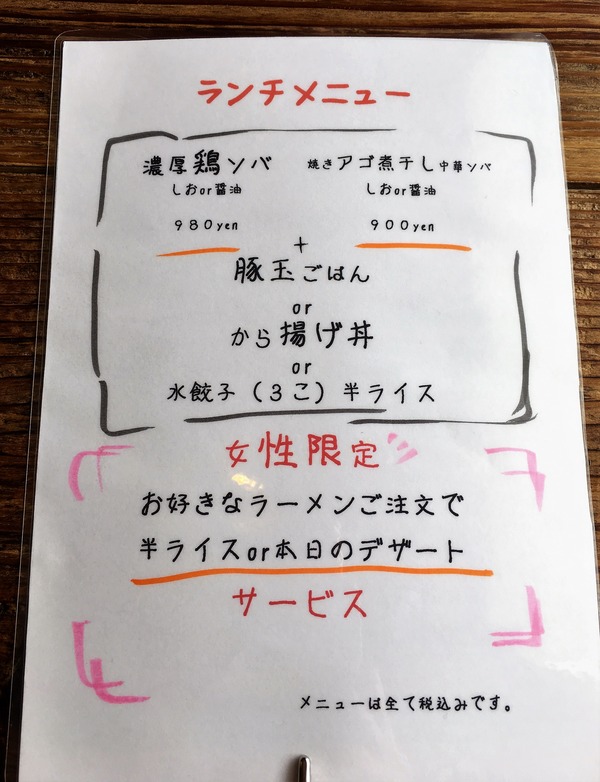 ランチメニュー
濃厚鶏ソバ
しおor醤油
980yen
焼きアゴ煮干し中華ソバ
しおor醤油
900yen
+
豚玉ごはん
or
から揚げ丼
or
水餃子(3こ)半ライス
女性限定
お好きなラーメンご注文で
半ライスor本日のデザート
サービス
メニューは全て税込みです。